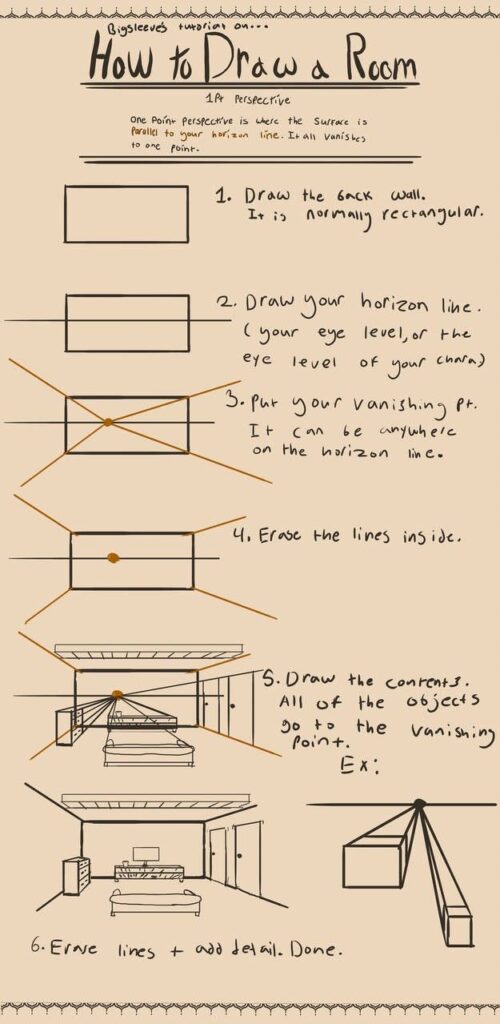 Bigsleeve's tutorial on...
How to Draw a Room
1Pt Perspective
One Point perspective is where the surface is
parallel to your horizon line. It all vanishes
to one point.
1. Draw the back wall.
It is normally rectangular.
2. Draw your horizon line.
(your eye level, or the
eye level of your chara)
3. Put your vanishing pt.
It can be anywhere
on the horizon line.
4. Erase the lines inside.
5. Draw the contents.
All of the objects
go to the vanishing
point.
Ex:
6. Erase lines + add detail. Done.